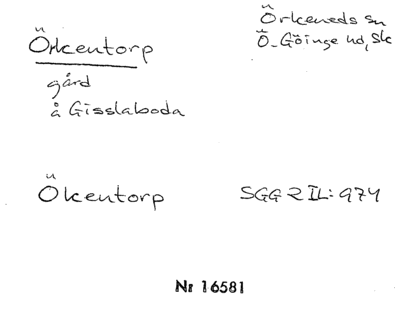 Örkentorp
Örkeneds sn
Ö. Göinge hd, Sk
gård
å Gisslaboda
Ökentorp
SGG 2 II: 974
Nr 16581